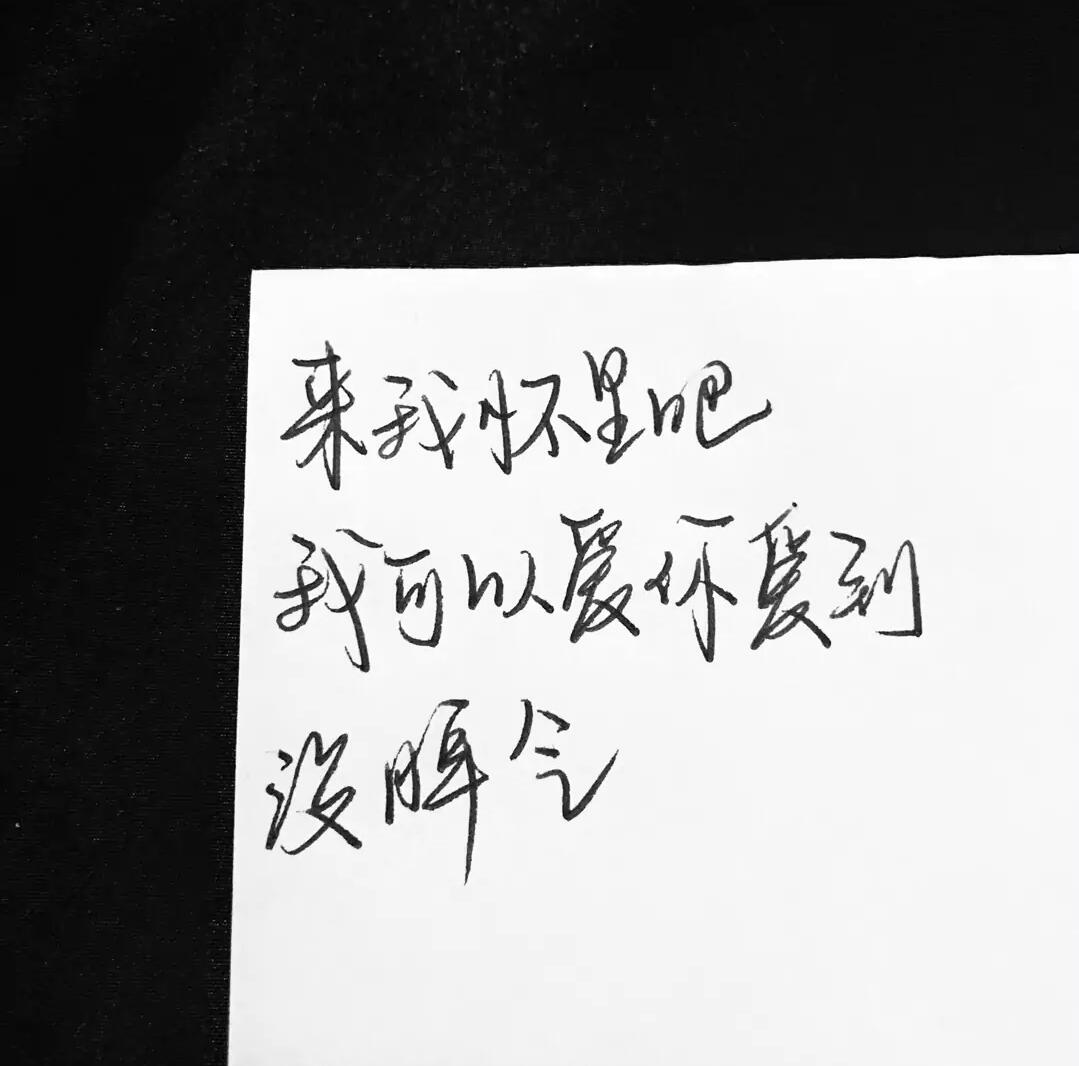 来我怀里吧
我可以爱你爱到
没脾气